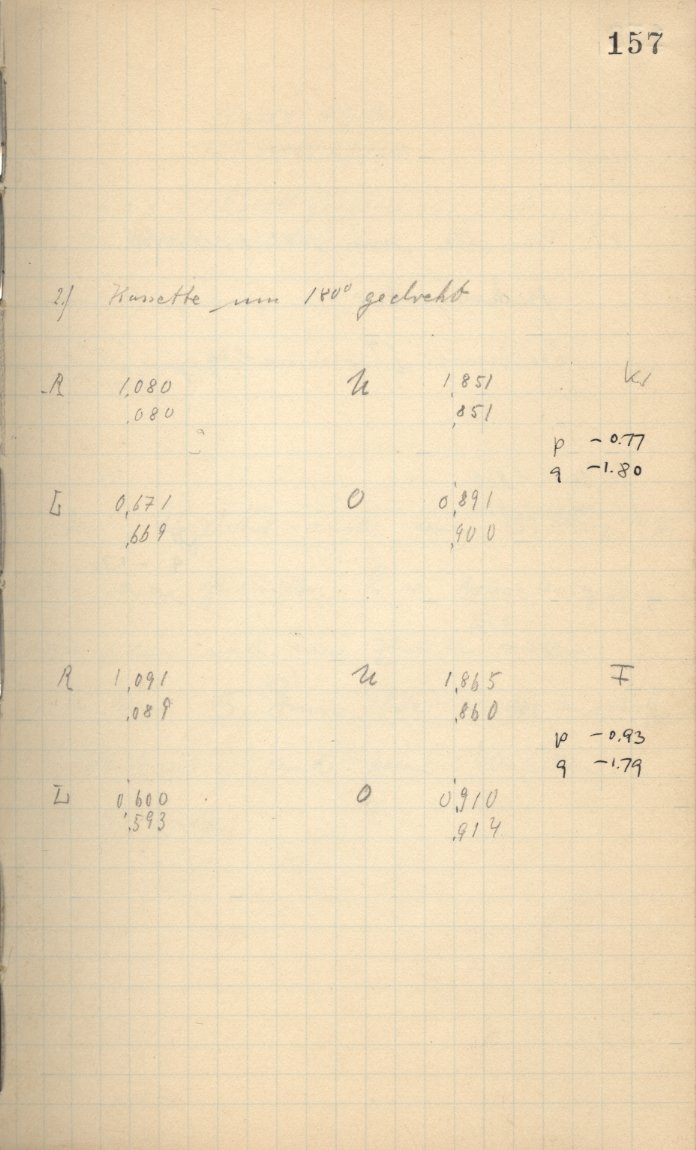 157
2.) Kassette um 180° gedreht
R 1,080 U 1,851 Kr
,080 ,851
p -0.77
q -1.80
L 0,671 O 0,891
,669 ,900
R 1,091 U 1,865 F
,089 ,860
p -0.93
q -1.79
L 0,600 O 0,910
,593 ,914